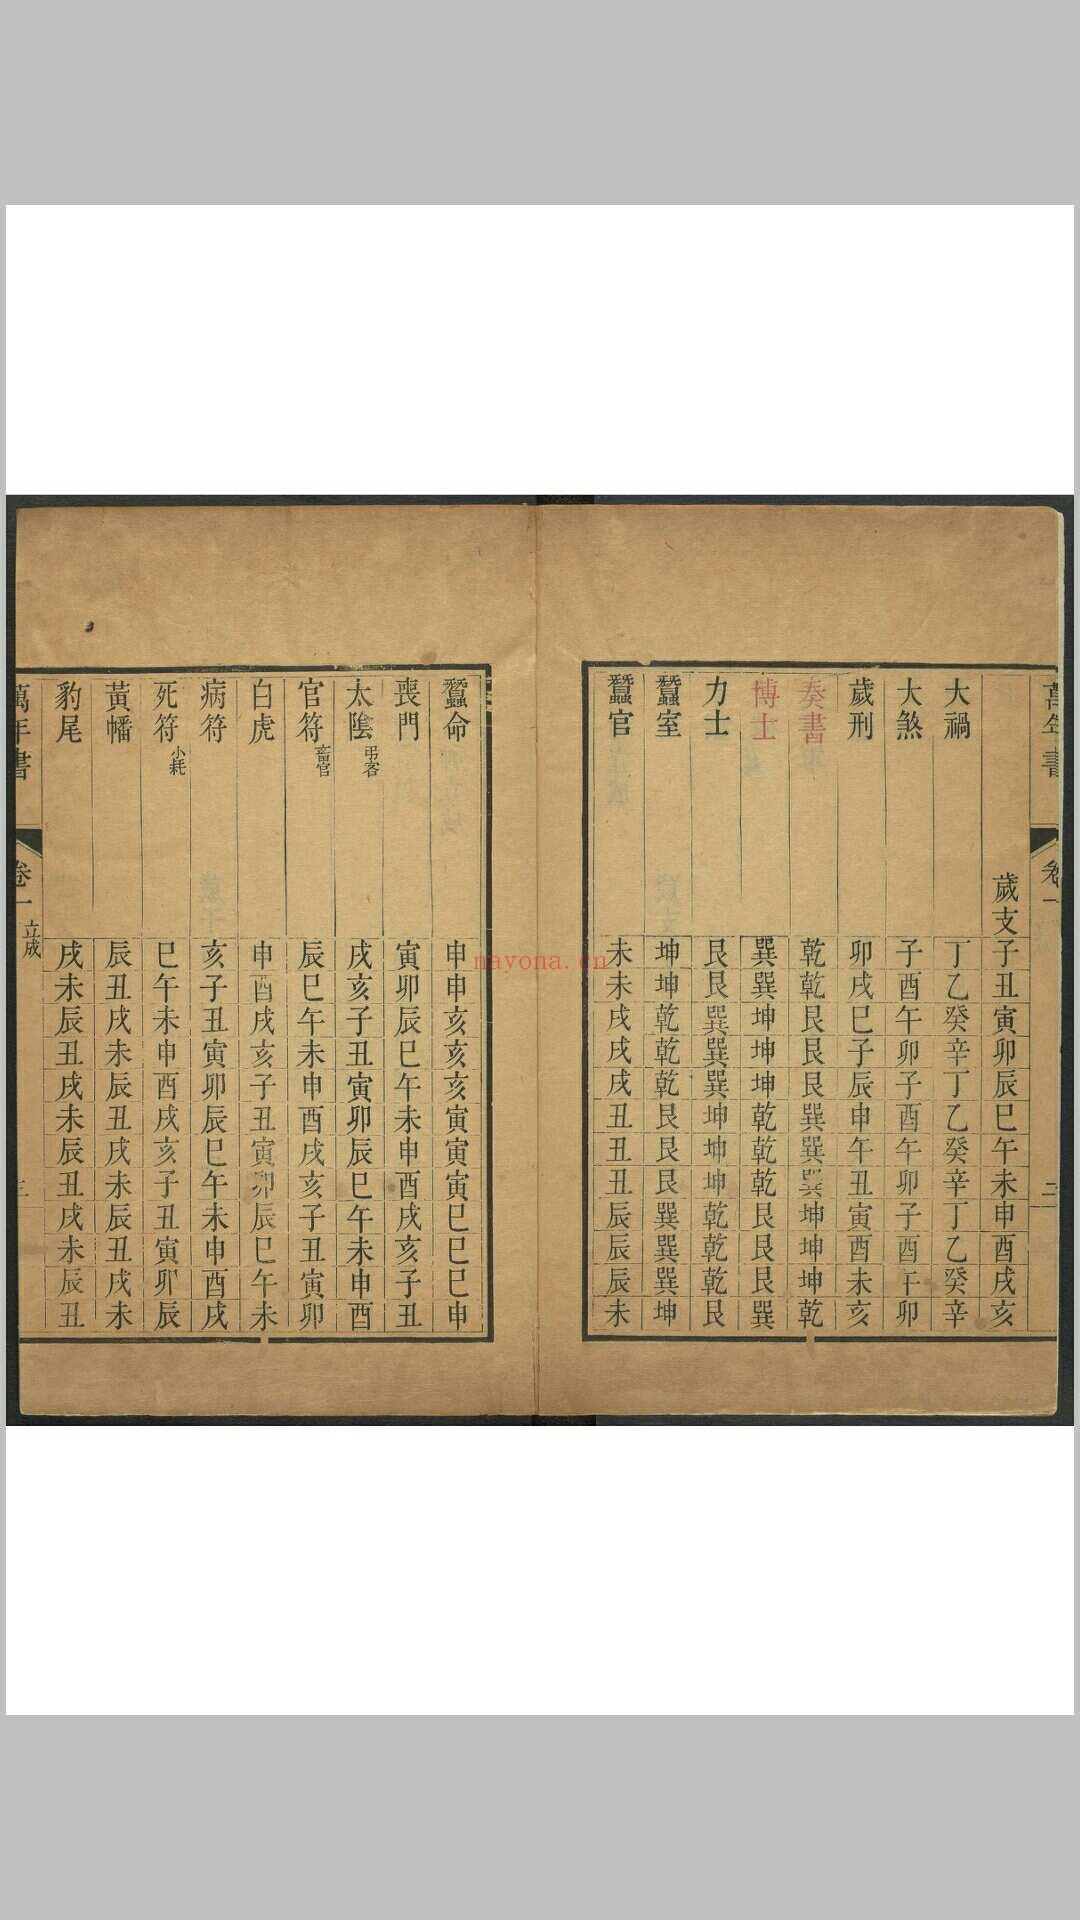 萬年書
卷一
二
歲支子丑寅卯辰巳午未申酉戌亥
大禍丁乙癸辛丁乙癸辛丁乙癸辛
大煞子酉午卯子酉午卯子酉午卯
歲刑卯戌巳子辰申午丑寅酉未亥
奏書乾乾艮艮艮巽巽巽坤坤坤乾
博士巽巽坤坤坤乾乾乾艮艮艮巽
力士艮艮巽巽巽坤坤坤乾乾乾艮
蠶室坤坤乾乾乾艮艮艮巽巽巽坤
蠶官未未戌戌戌丑丑丑辰辰辰未
蠶命申申亥亥亥寅寅寅巳巳巳申
喪門寅卯辰巳午未申酉戌亥子丑
太陰弔客戌亥子丑寅卯辰巳午未申酉
官符畜官辰巳午未申酉戌亥子丑寅卯
白虎申酉戌亥子丑寅卯辰巳午未
病符亥子丑寅卯辰巳午未申酉戌
死符小耗巳午未申酉戌亥子丑寅卯辰
黃幡辰丑戌未辰丑戌未辰丑戌未
豹尾戌未辰丑戌未辰丑戌未辰丑
萬年書
卷一
立成
三
nayona.cn